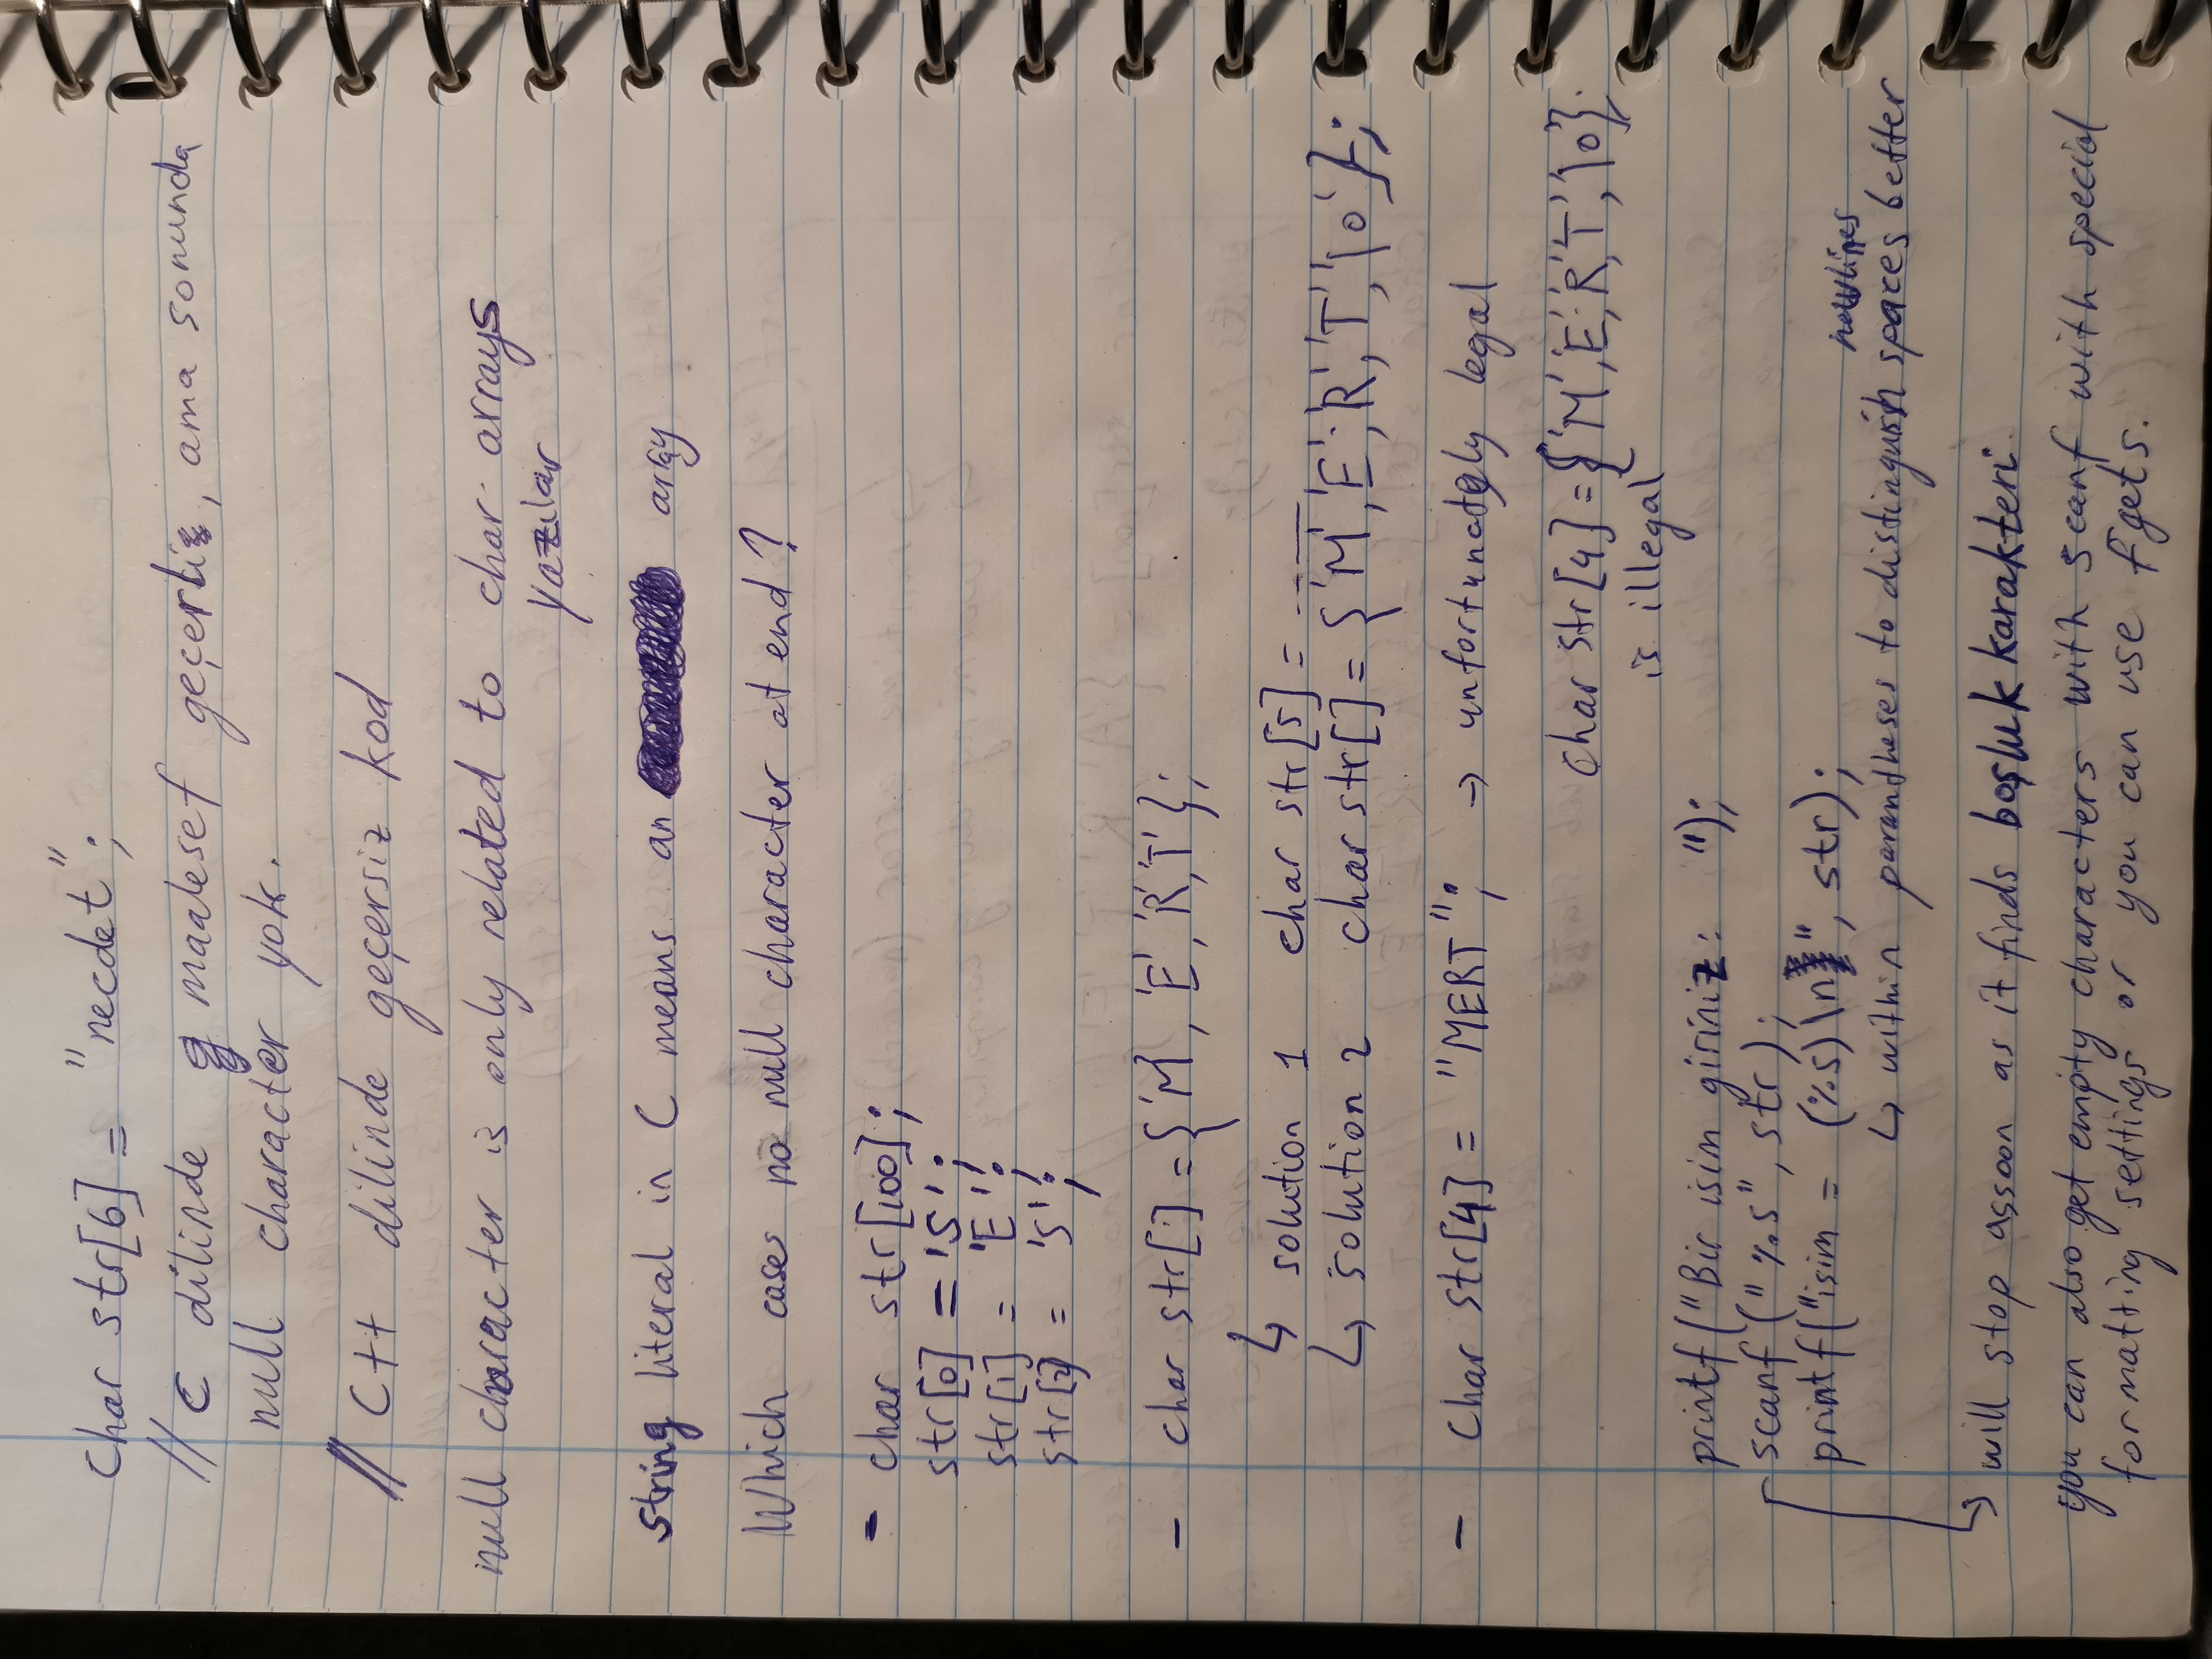 char str[6] = "necdet";
// C dilinde maalesef geçerli, ama sonunda
null character yok.
// C++ dilinde geçersiz kod
null character is only related to char arrays
yazılar
string literal in C means an array
Which cases no null character at end?
- char str[100];
str[0] = 'S';
str[1] = 'E';
str[2] = 'S';
- char str[] = {'M', 'E', 'R', 'T'};
↳ solution 1 char str[5] = -----
↳ solution 2 char str[] = {'M', 'E', 'R', 'T', '\0'};
- char str[4] = "MERT"; → unfortunately legal
char str[4] = {'M', 'E', 'R', 'T', '\0'};
is illegal
printf("Bir isim giriniz: ");
scanf("%s", str);
printf("isim = (%s)\n", str);
newlines
↳ within parantheses to distinguish spaces better
↳ will stop assoon as it finds boşluk karakteri.
you can also get empty characters with scanf with special
formatting settings or you can use fgets.